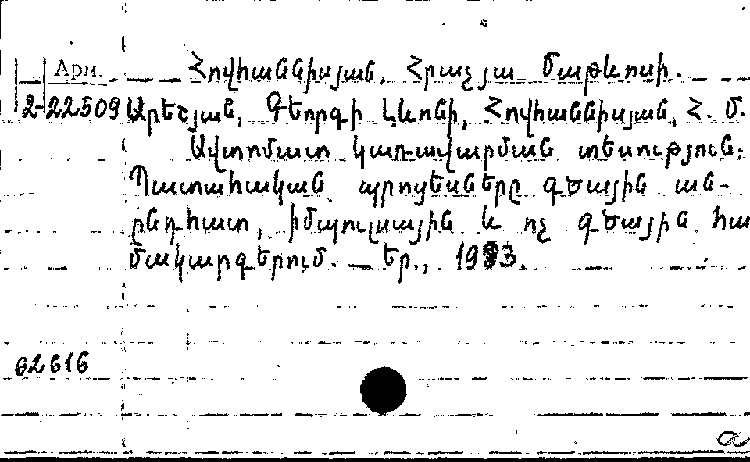 Арм.
Հովհաննիսյան, Հրաչյա Մաթևոսի.
2-22509
Արեշյան, Գեորգի Լևոնի, Հովհաննիսյան, Հ. Մ.
Ավտոմատ կառավարման տեսություն:
Պատահական պրոցեսները գծային ան-
ընդհատ, իմպուլսային և ոչ գծային հա
մակարգերում. — Եր., 1983.
62616
a